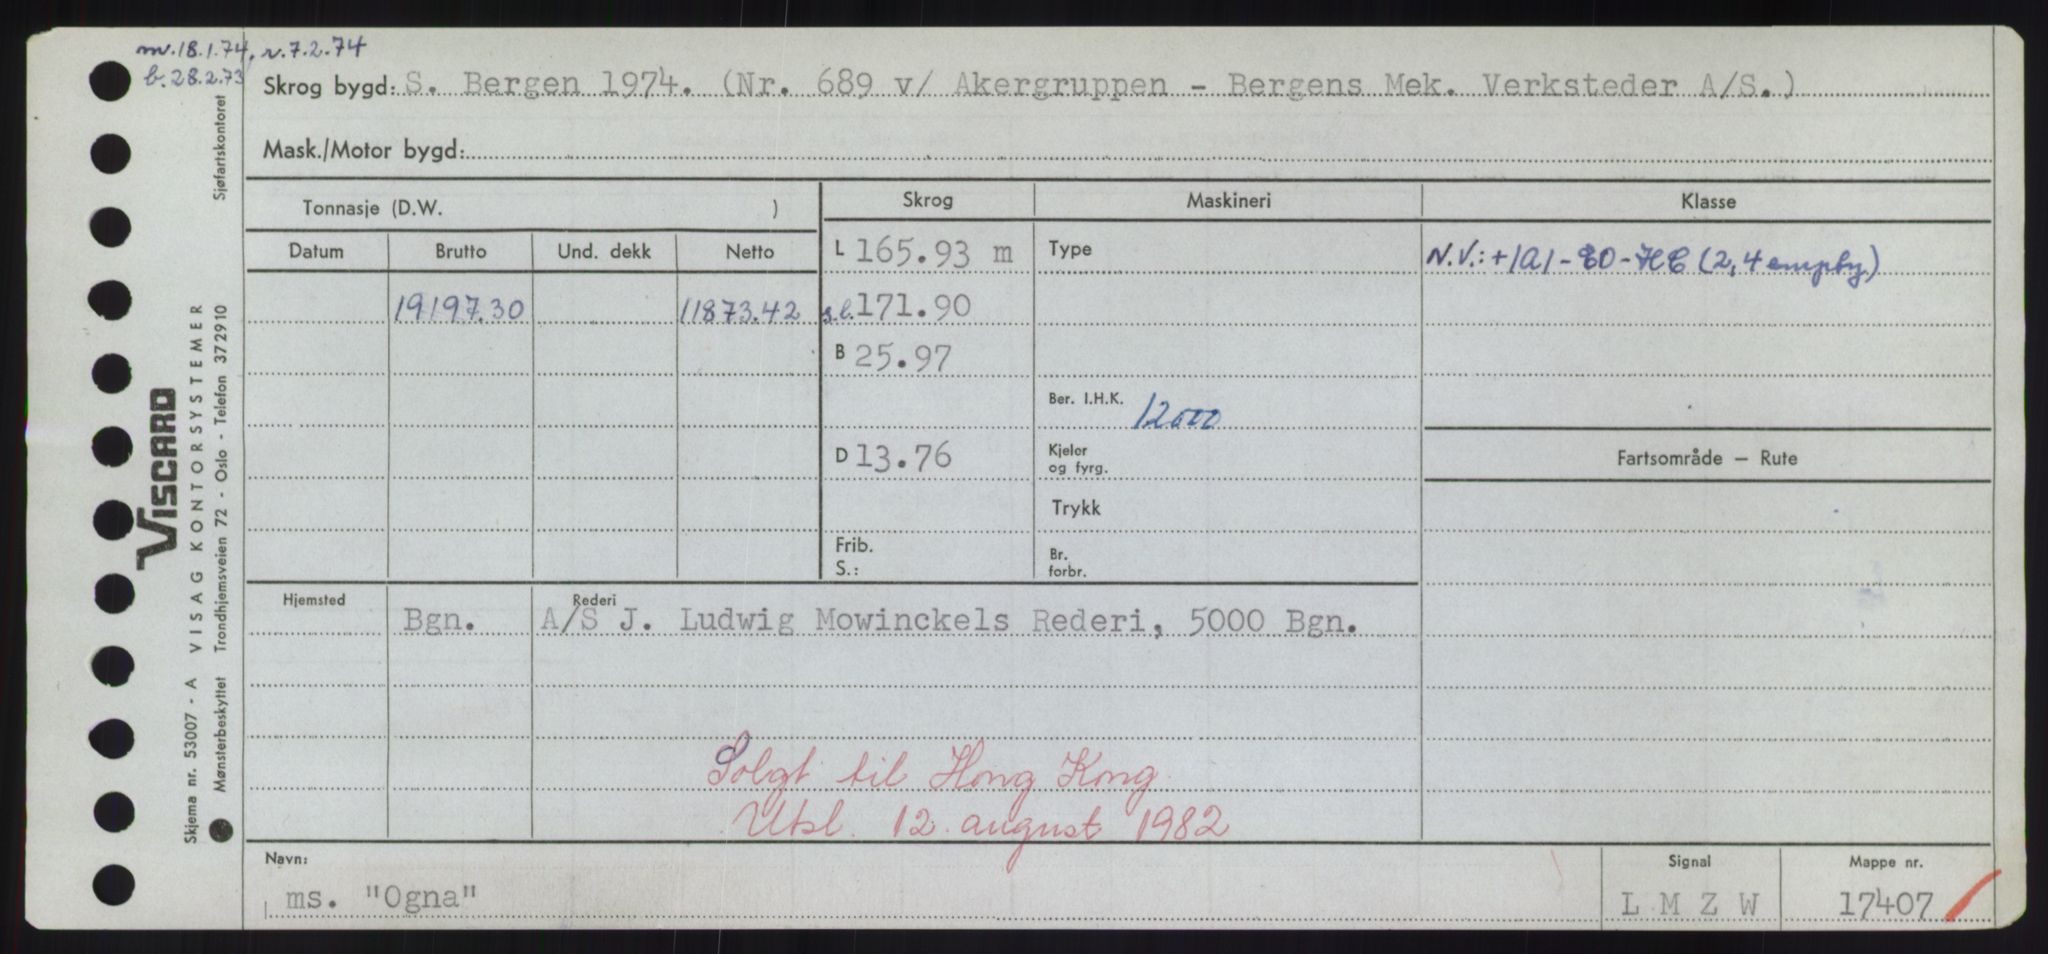 mv.18.1.74, r.7.2.74
b.28.2.73
Skrog bygd: S. Bergen 1974. (Nr. 689 v/ Akergruppen - Bergens Mek. Verksteder A/S.)
Mask./Motor bygd:
Tonnasje (D.W. )
Skrog
Maskineri
Klasse
Datum Brutto Und. dekk Netto
L 165.93 m
Type
N.V.: +1A1-EO-HC (2,4 empty)
19197.30 11873.42
s.l. 171.90
B 25.97
Ber. I.H.K. 12000
D 13.76
Kjeler
og fyrg.
Fartsområde – Rute
Trykk
Frib.
S.:
Br.
forbr.
Hjemsted Bgn.
Rederi A/S J. Ludwig Mowinckels Rederi, 5000 Bgn.
Solgt til Hong Kong
Utsl. 12. august 1982
Navn:
ms. "Ogna"
Signal
L M Z W
Mappe nr.
17407
Sjøfartskontoret
VISCARD
VISAG KONTORSYSTEMER
Skjema nr. 53007 - A
Mønsterbeskyttet Trondhjemsveien 72 - Oslo - Telefon 372910